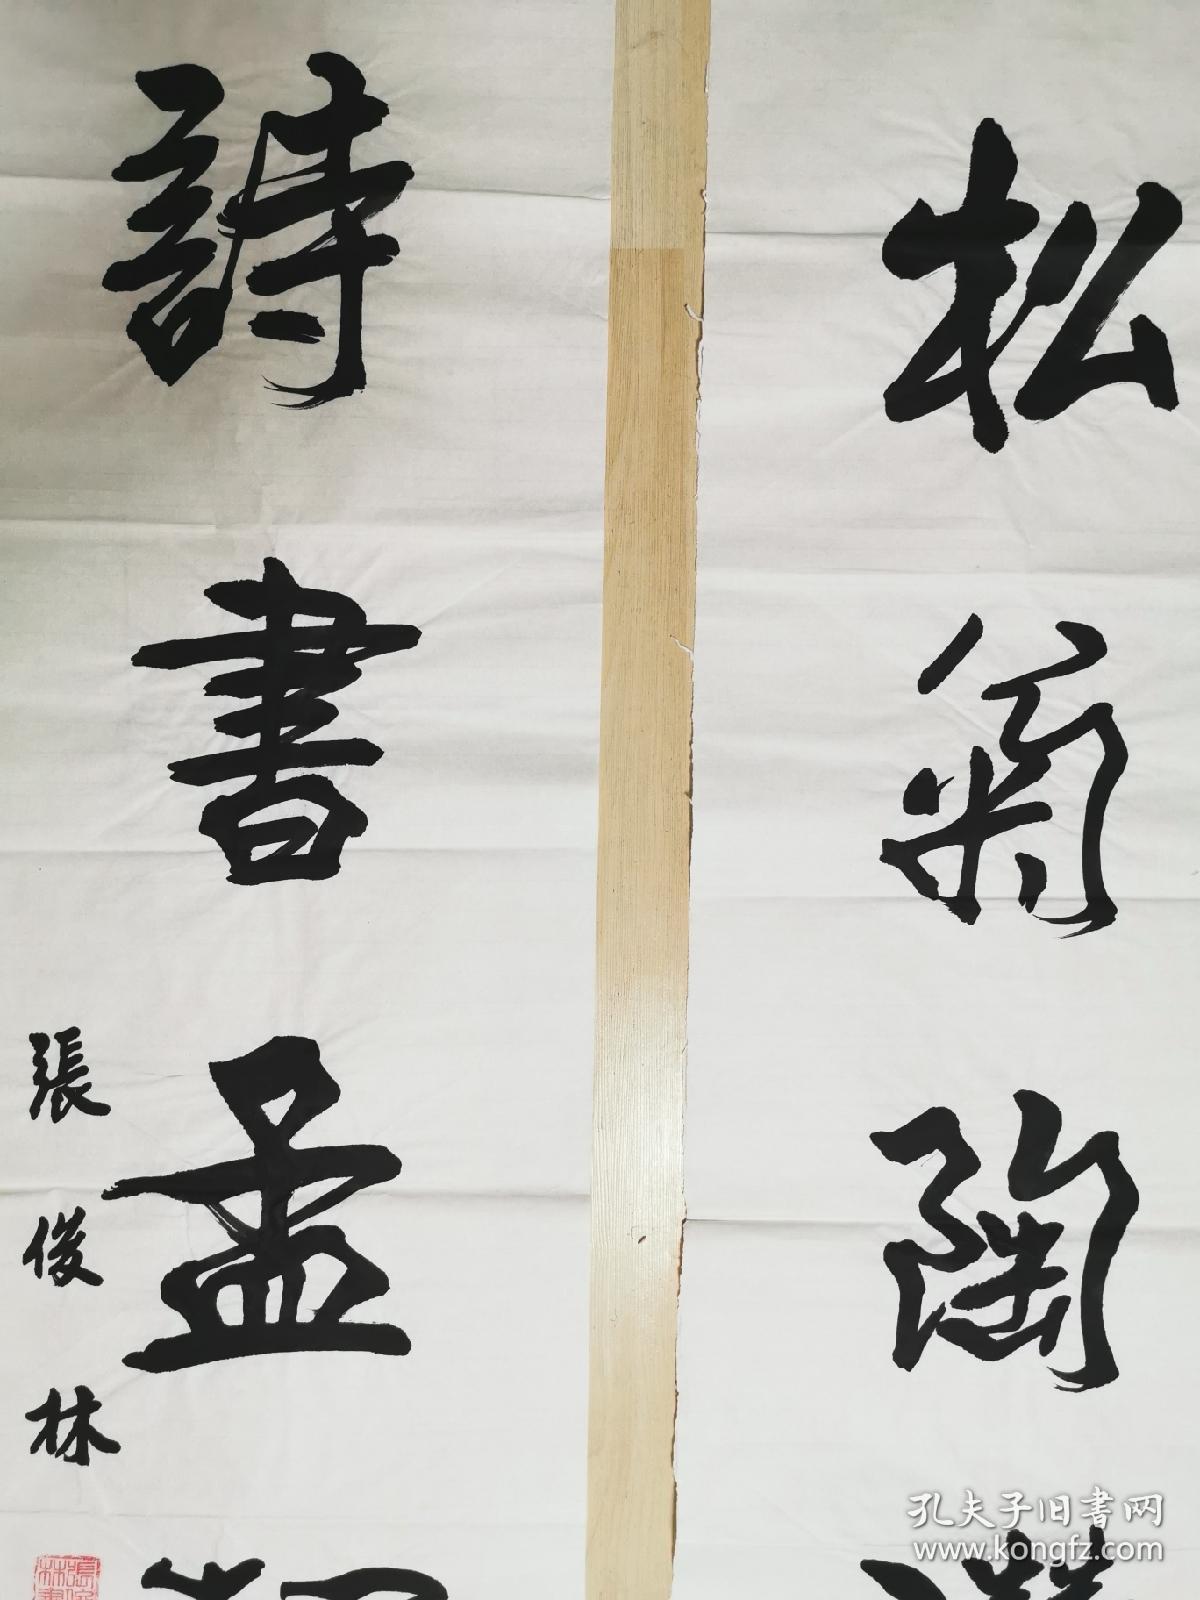 松氣陶
詩書孟
張俊林
孔夫子旧書网
www.kongfz.com